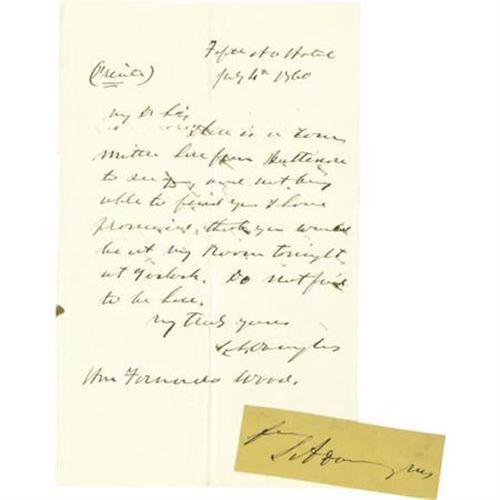 Fifth Av Hotel
July 4th 1860
(Private)
My Dr Sir
There is a Com
mittee here from Baltimore
to see you, and not being
able to find you I have
promised that you would
be at my Room tonight
at 9 oclock. Do not fail
to be here.
Very truly yours
S. A. Douglas
Hon Fernando Wood.
S A Douglas